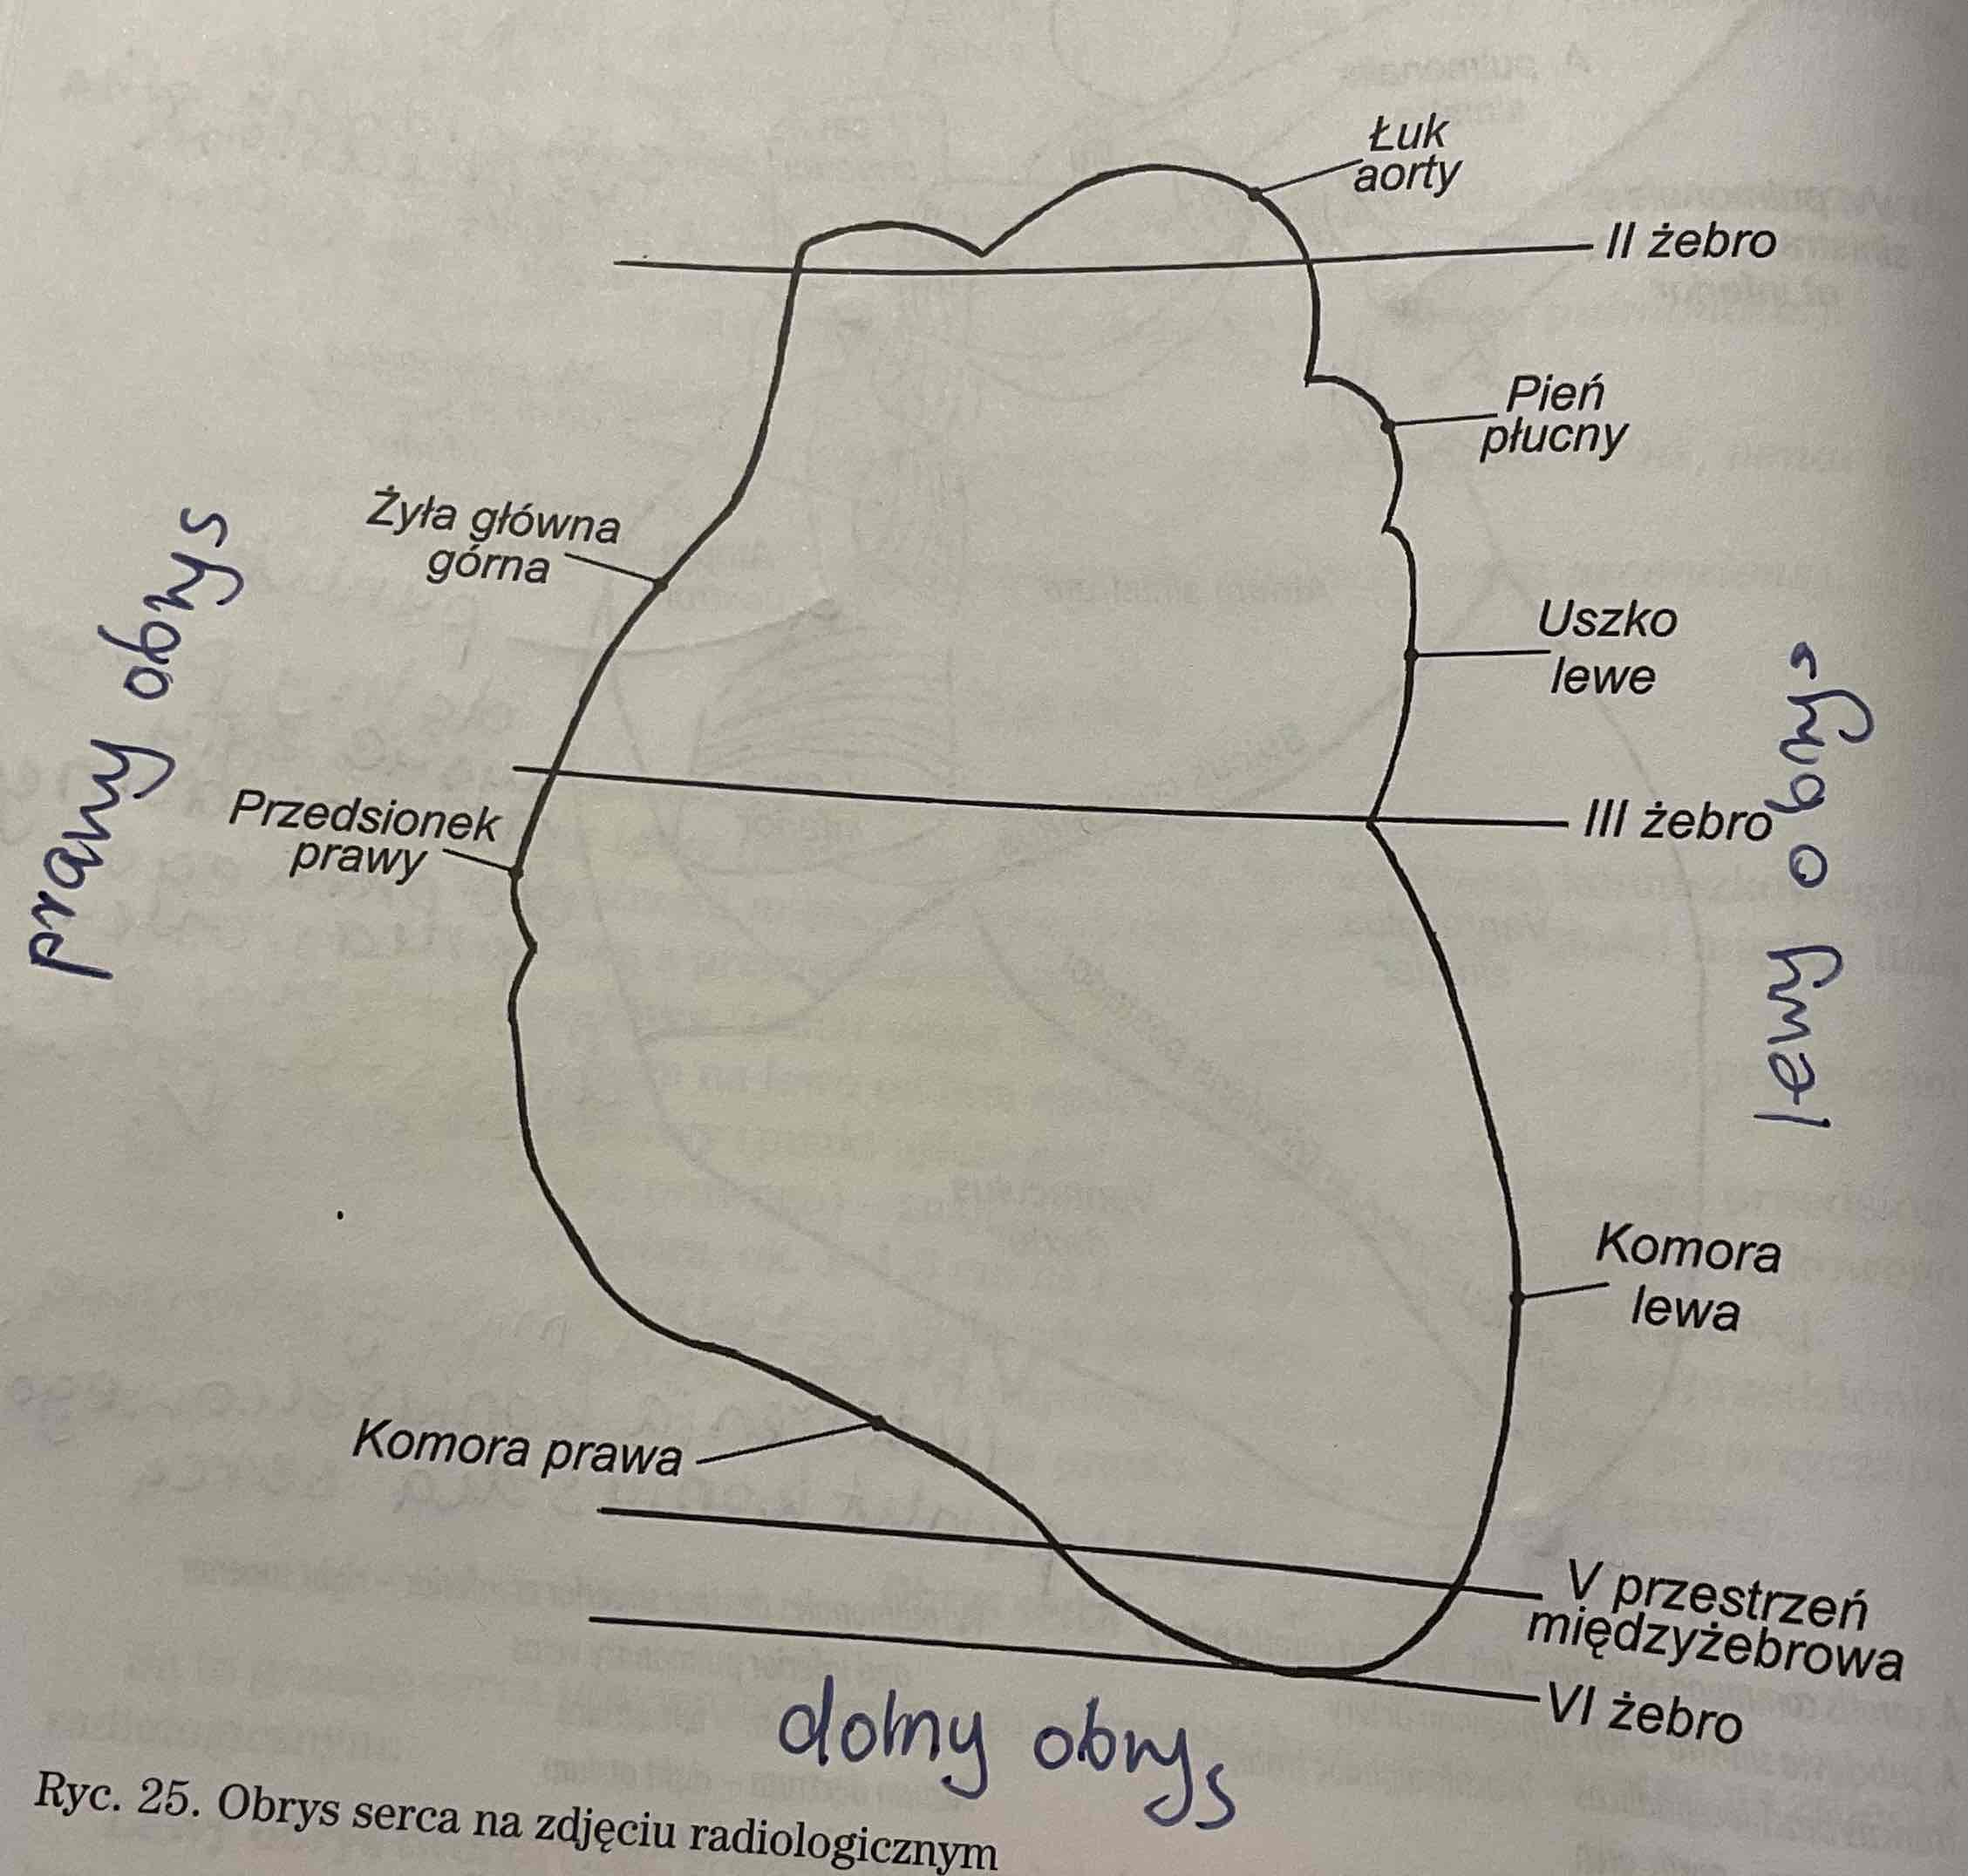 Łuk
aorty
II żebro
Pień
płucny
Żyła główna
górna
prawy obrys
Uszko
lewe
lewy obrys
Przedsionek
prawy
III żebro
Komora
lewa
Komora prawa
V przestrzeń
międzyżebrowa
VI żebro
dolny obrys
Ryc. 25. Obrys serca na zdjęciu radiologicznym